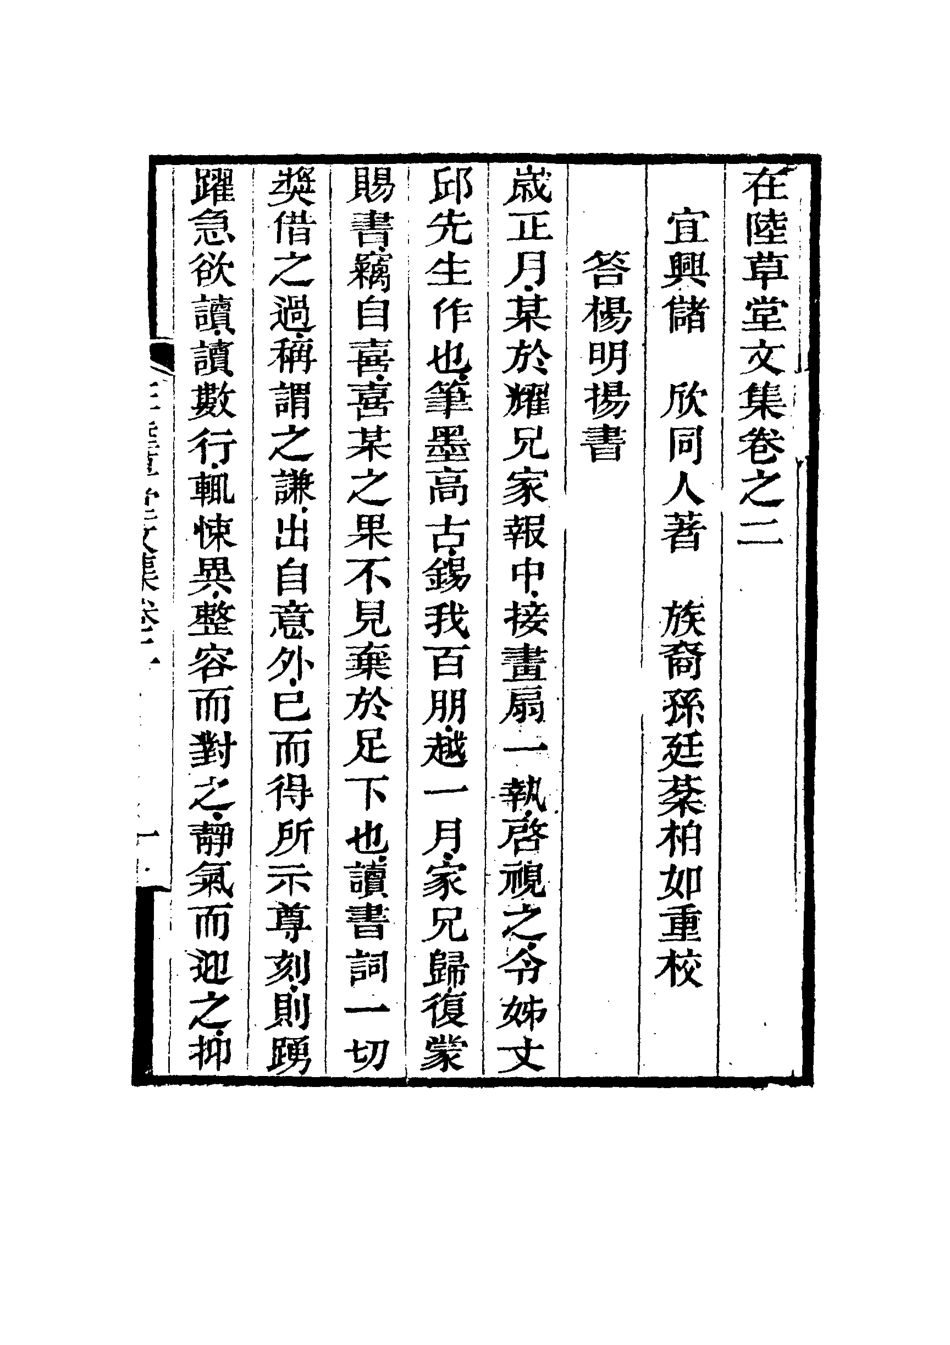 在陸草堂文集卷之二
宜興儲　欣同人著　族裔孫廷棻柏如重校
答楊明揚書
歲正月某於耀兄家報中接畫扇一執啓視之令姊丈
邱先生作也筆墨高古錫我百朋越一月家兄歸復蒙
賜書竊自喜喜某之果不見棄於足下也讀書詞一切
奬借之過稱謂之謙出自意外已而得所示尊刻則踴
躍急欲讀讀數行輒悚異整容而對之靜氣而迎之抑
在陸草堂文集卷二　一